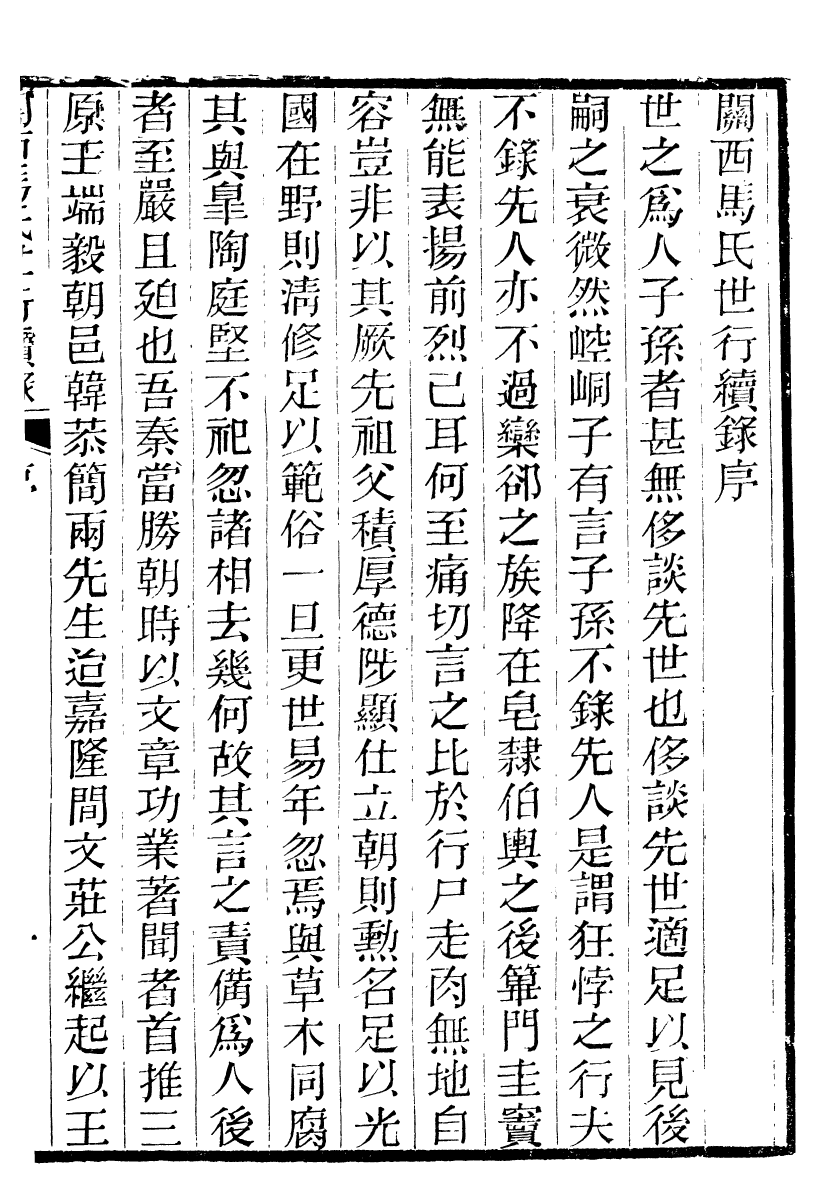 關西馬氏世行續錄序
世之爲人子孫者甚無侈談先世也侈談先世適足以見後
嗣之衰微然崆峒子有言子孫不錄先人是謂狂悖之行夫
不錄先人亦不過欒郤之族降在皂隸伯輿之後篳門圭竇
無能表揚前烈己耳何至痛切言之比於行尸走肉無地自
容豈非以其厥先祖父積厚德陟顯仕立朝則勲名足以光
國在野則清修足以範俗一旦更世易年忽焉與草木同腐
其與臯陶庭堅不祀忽諸相去幾何故其言之責備爲人後
者至嚴且廹也吾秦當勝朝時以文章功業著聞者首推三
原王端毅朝邑韓恭簡兩先生迨嘉隆間文莊公繼起以王